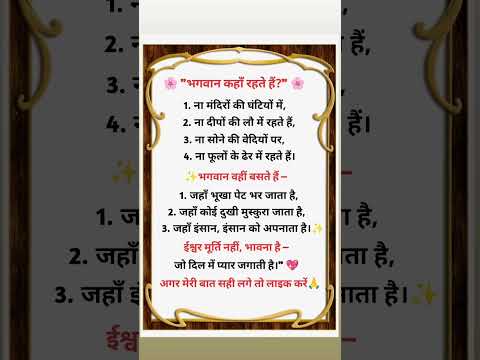 🌸 "भगवान कहाँ रहते हैं?" 🌸
1. ना मंदिरों की घंटियों में,
2. ना दीपों की लौ में रहते हैं,
3. ना सोने की वेदियों पर,
4. ना फूलों के ढेर में रहते हैं।
✨भगवान वहीं बसते हैं –
1. जहाँ भूखा पेट भर जाता है,
2. जहाँ कोई दुखी मुस्कुरा जाता है,
3. जहाँ इंसान, इंसान को अपनाता है।✨
ईश्वर मूर्ति नहीं, भावना है –
जो दिल में प्यार जगाती है।" 💖
अगर मेरी बात सही लगे तो लाइक करें🙏